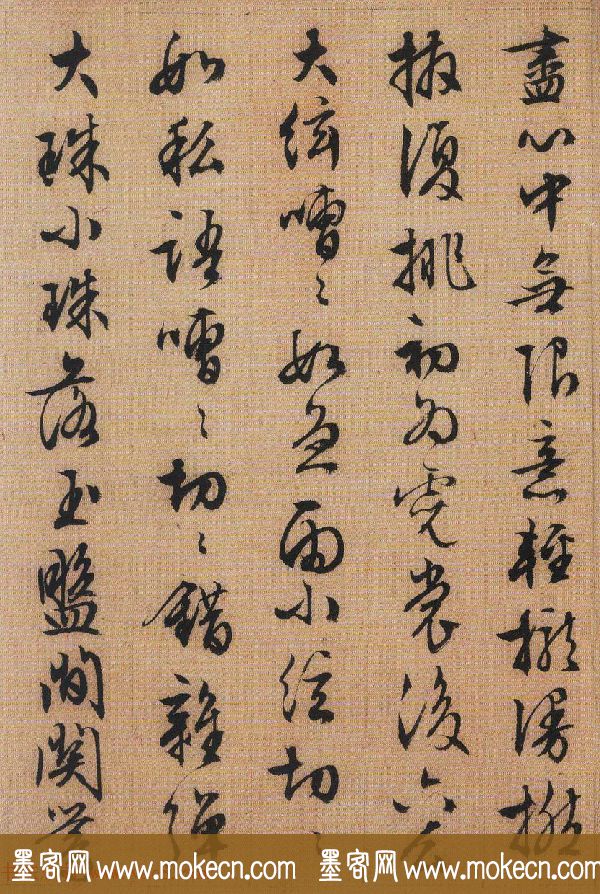 盡心中無限意輕攏慢撚
抹復挑初為霓裳後六么
大絃嘈〻如急雨小絃切〻
如私語嘈〻切〻錯雜彈
大珠小珠落玉盤間關鶯
墨客网 www.mokecn.com 墨客网 www.mokecn.com